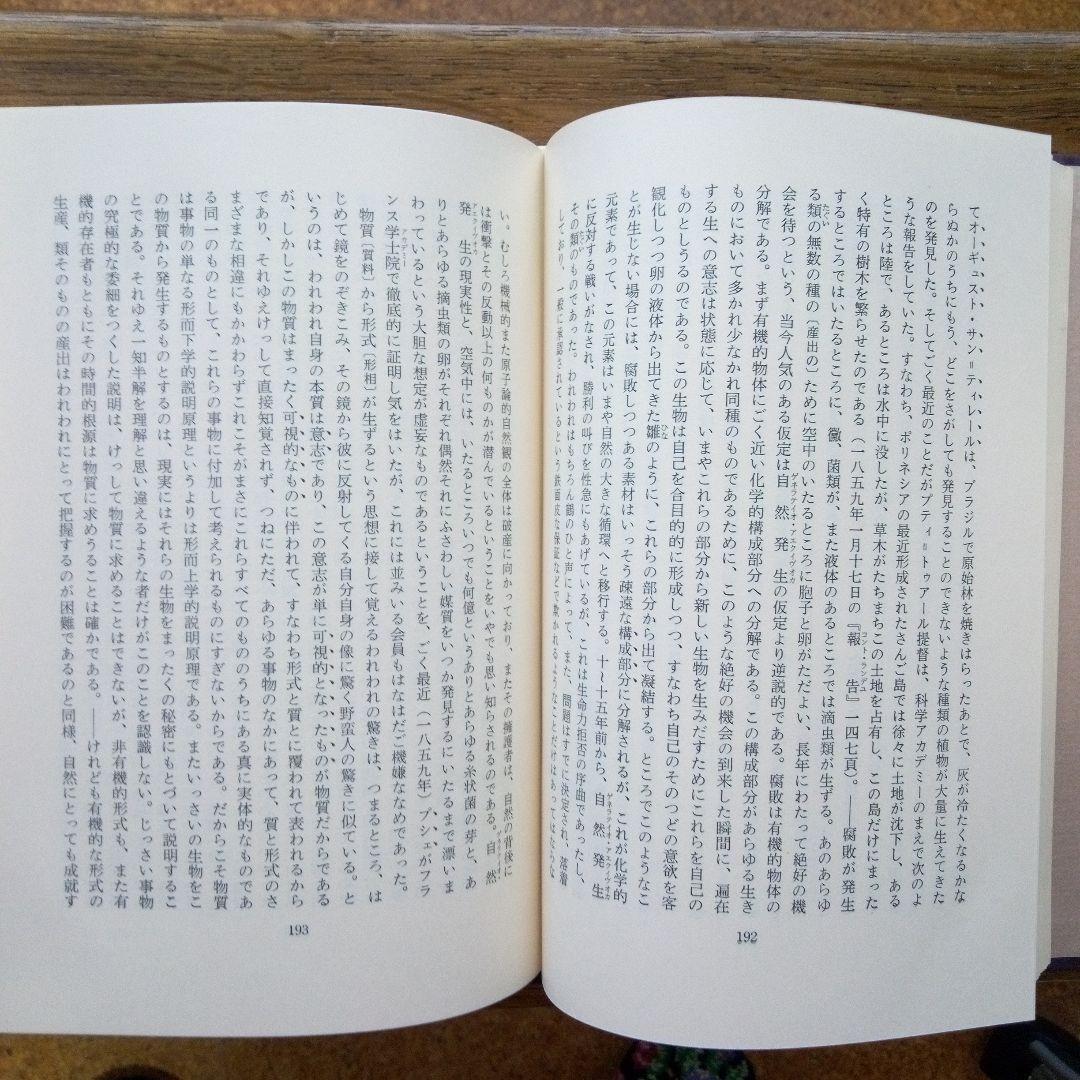 て、オーギュスト・サン゠ティレールは、ブラジルで原始林を焼きはらったあとで、灰が冷たくなるかな
らぬかのうちにもう、どこをさがしても発見することのできないような種類の植物が大量に生えてきた
のを発見した。そしてごく最近のことだがプティ゠トゥアール提督は、科学アカデミーのまえで次のよ
うな報告をしていた。すなわち、ポリネシアの最近形成されたさんご島では徐々に土地が沈下し、ある
ところは陸で、あるところは水中に没したが、草木がたちまちこの土地を占有し、この島だけにまった
く特有の樹木を繁らせたのである(一八五九年一月十七日の『報告』一四七頁)。――腐敗が発生
するところではいたるところに、黴、菌類が、また液体のあるところでは滴虫類が生ずる。あのあらゆ
る類の無数の種の〔産出の〕ために空中のいたるところに胞子と卵がただよい、長年にわたって絶好の機
会を待つという、当今人気のある仮定は自然発生の仮定より逆説的である。腐敗は有機的物体の
分解である。まず有機的物体にごく近い化学的構成部分への分解である。この構成部分があらゆる生き
ものにおいて多かれ少なかれ同種のものであるために、このような絶好の機会の到来した瞬間に、遍在
する生への意志は状態に応じて、いまやこれらの部分から新しい生物を生みだすためにこれらを自己の
ものとしうるのである。この生物は自己を合目的的に形成しつつ、すなわち自己のそのつどの意欲を客
観化しつつ卵の液体から出てきた雛のように、これらの部分から出て凝結する。ところでこのようなこ
とが生じない場合には、腐敗しつつある素材はいっそう疎遠な構成部分に分解されるが、これが化学的
元素であって、この元素はいまや自然の大きな循環へと移行する。十～十五年前から、自然発生
に反対する戦いがなされ、勝利の叫びを性急にもあげているが、これは生命力拒否の序曲であったし、
その類のものであった。われわれはもちろん鶴のひと声によって、また、問題はすでに決定され、落着
しており、一般に承認されているという鉄面皮な保証などで欺かれるようなことだけはあってはならな
192
い。むしろ機械的また原子論的自然観の全体は破産に向かっており、またその擁護者は、自然の背後に
は衝撃とその反動以上の何ものかが潜んでいるということをいやでも思い知らされるのである。自然
発生の現実性と、空気中には、いたるところいつでも何億というありとあらゆる糸状菌の芽と、あ
りとあらゆる摘虫類の卵がそれぞれ偶然それにふさわしい媒質をいつか発見するにいたるまで漂いま
わっているという大胆な想定が虚妄なものであるということを、ごく最近(一八五九年)プシェがフラ
ンス学士院で徹底的に証明し気をはいたが、これには並みいる会員もはなはだご機嫌ななめであった。
物質〔質料〕から形式〔形相〕が生ずるという思想に接して覚えるわれわれの驚きは、つまるところ、は
じめて鏡をのぞきこみ、その鏡から彼に反射してくる自分自身の像に驚く野蛮人の驚きに似ている。と
いうのは、われわれ自身の本質は意志であり、この意志が単に可視的となったものが物質だからである
が、しかしこの物質はまったく可視的なものに伴われて、すなわち形式と質とに覆われて表われるから
であり、それゆえけっして直接知覚されず、つねにただ、あらゆる事物のなかにあって、質と形式のさ
まざまな相違にもかかわらずこれこそがまさにこれらすべてのもののうちにある真に実体的なものであ
る同一のものとして、これらの事物に付加して考えられるものにすぎないからである。だからこそ物質
は事物の単なる形而下学的説明原理というよりは形而上学的説明原理である。またいっさいの生物をこ
の物質から発生するものとするのは、現実にはそれらの生物をまったくの秘密にもとづいて説明するこ
とである。それゆえ一知半解を理解と思い違えるような者だけがこのことを認識しない。じっさい事物
の究極的な委細をつくした説明は、けっして物質に求めることはできないが、非有機的形式も、また有
機的存在者もともにその時間的根源は物質に求めうることは確かである。――けれども有機的な形式の
生産、類そのものの産出はわれわれにとって把握するのが困難であるのと同様、自然にとっても成就す
193